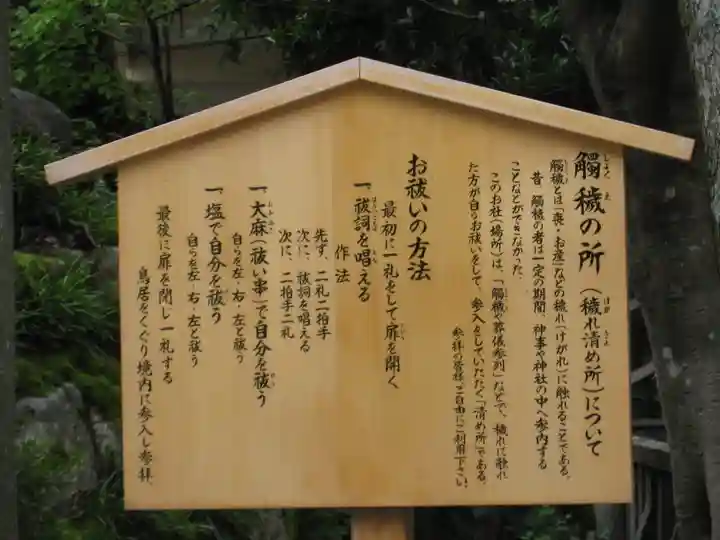 觸穢の所（穢れ清め所）について
觸穢とは「喪・お産」などの穢れ（けがれ）に触れることである。
昔 觸穢の者は一定の期間、神事や神社の中へ参内する
ことなどができなかった。
このお社（場所）は、「觸穢や葬儀参列」などで、穢れに触れ
た方が自らお祓いをして、参入をしていただく「清め所」である。
参拝の皆様、ご自由にご利用下さい。
お祓いの方法
最初に一礼をして扉を開く
一、祓詞を唱える
作法
先ず、二礼二拍手
次に、祓詞を唱える
次に、二拍手二礼
一、大麻（祓い串）で自分を祓う
自らを左・右・左と祓う
一、塩で自分を祓う
自らを左・右・左と祓う
最後に扉を閉し一礼する
鳥居をくぐり境内に参入し参拝。